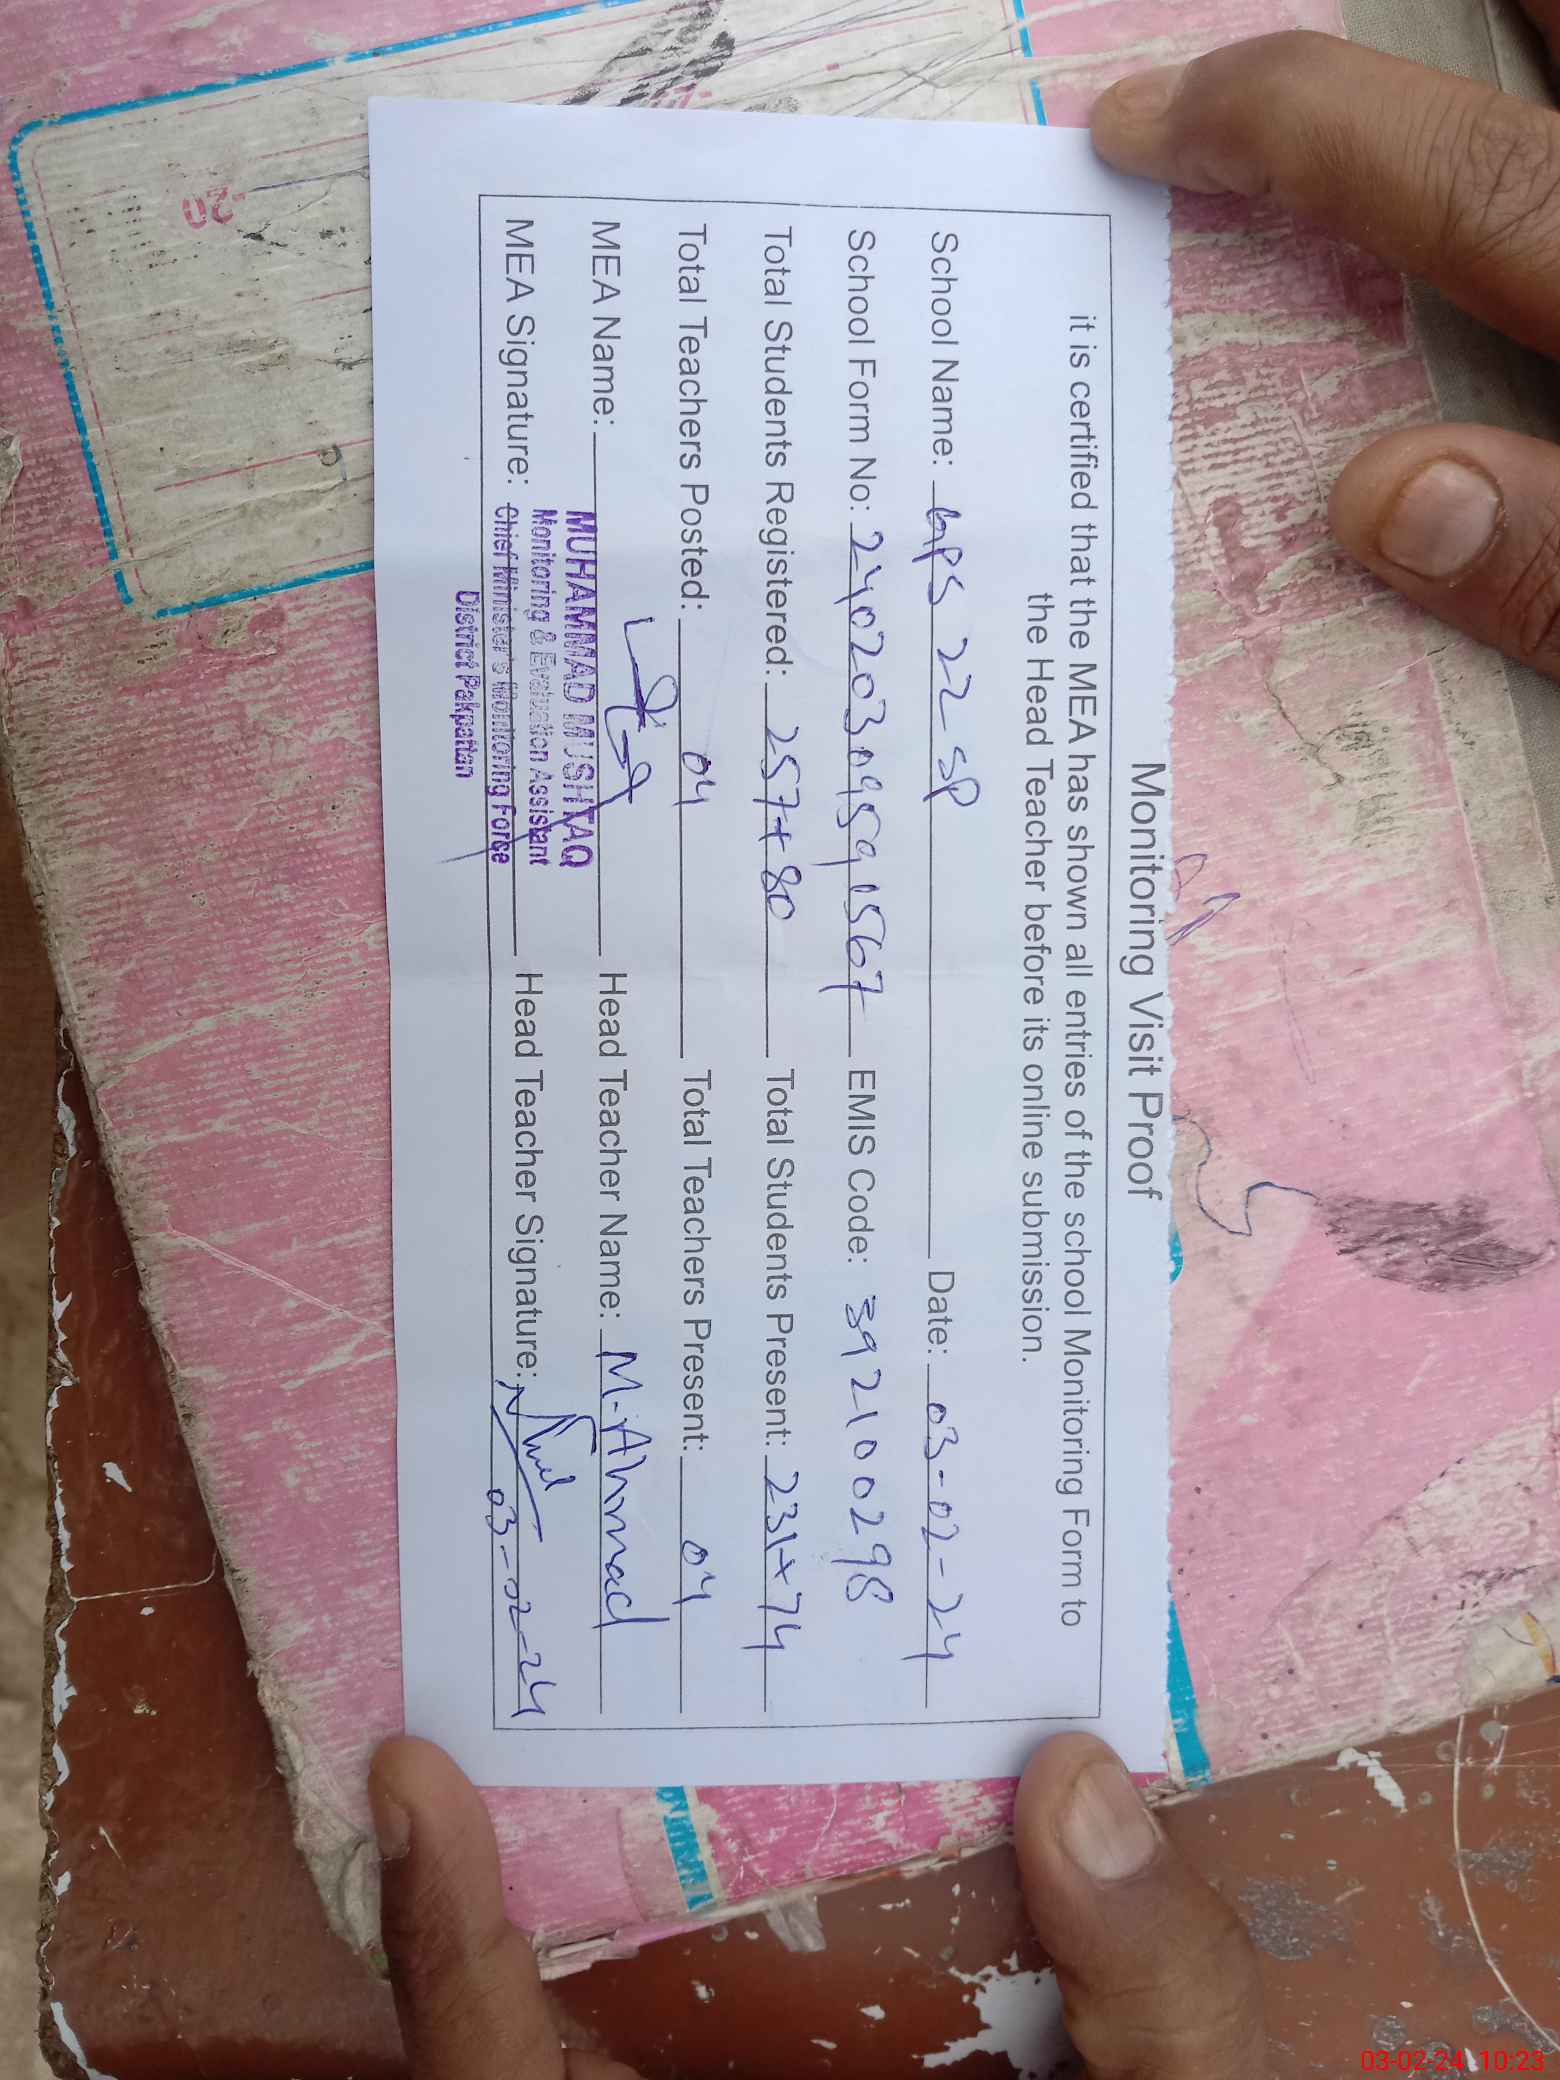 Monitoring Visit Proof
it is certified that the MEA has shown all entries of the school Monitoring Form to
the Head Teacher before its online submission.
School Name: GPS 22 SP Date: 03-02-24
School Form No: 24020309591567 EMIS Code: 39210298
Total Students Registered: 257+80 Total Students Present: 231+74
Total Teachers Posted: 04 Total Teachers Present: 04
MEA Name: Head Teacher Name: M. Ahmad
MUHAMMAD MUSHTAQ
Monitoring & Evaluation Assistant
MEA Signature: Chief Minister's Monitoring Force Head Teacher Signature:
03-02-24
District Pakpattan
03-02-24 10:23